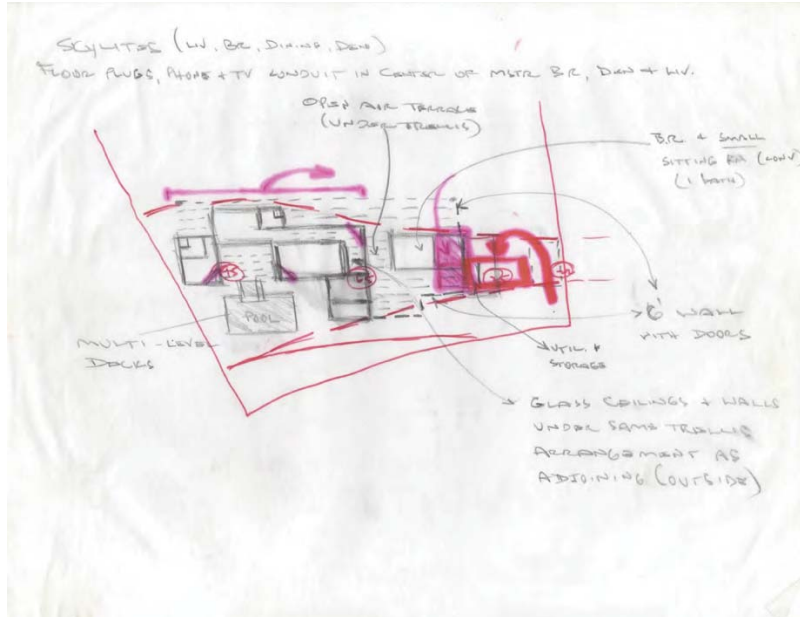 SKYLITES (LIV, BR, DINING, DEN)
FLOOR PLUGS, PHONE + TV CONDUIT IN CENTER OF MSTR BR, DEN + LIV.
OPEN AIR TERRACE
(UNDER TRELLIS)
B.R. & SMALL
SITTING RM (CONV)
(1 BATH)
POOL
MULTI-LEVEL
DECKS
6' WALL
WITH DOORS
UTIL. &
STORAGE
GLASS CEILINGS + WALLS
UNDER SAME TRELLIS
ARRANGEMENT AS
ADJOINING (OUTSIDE)